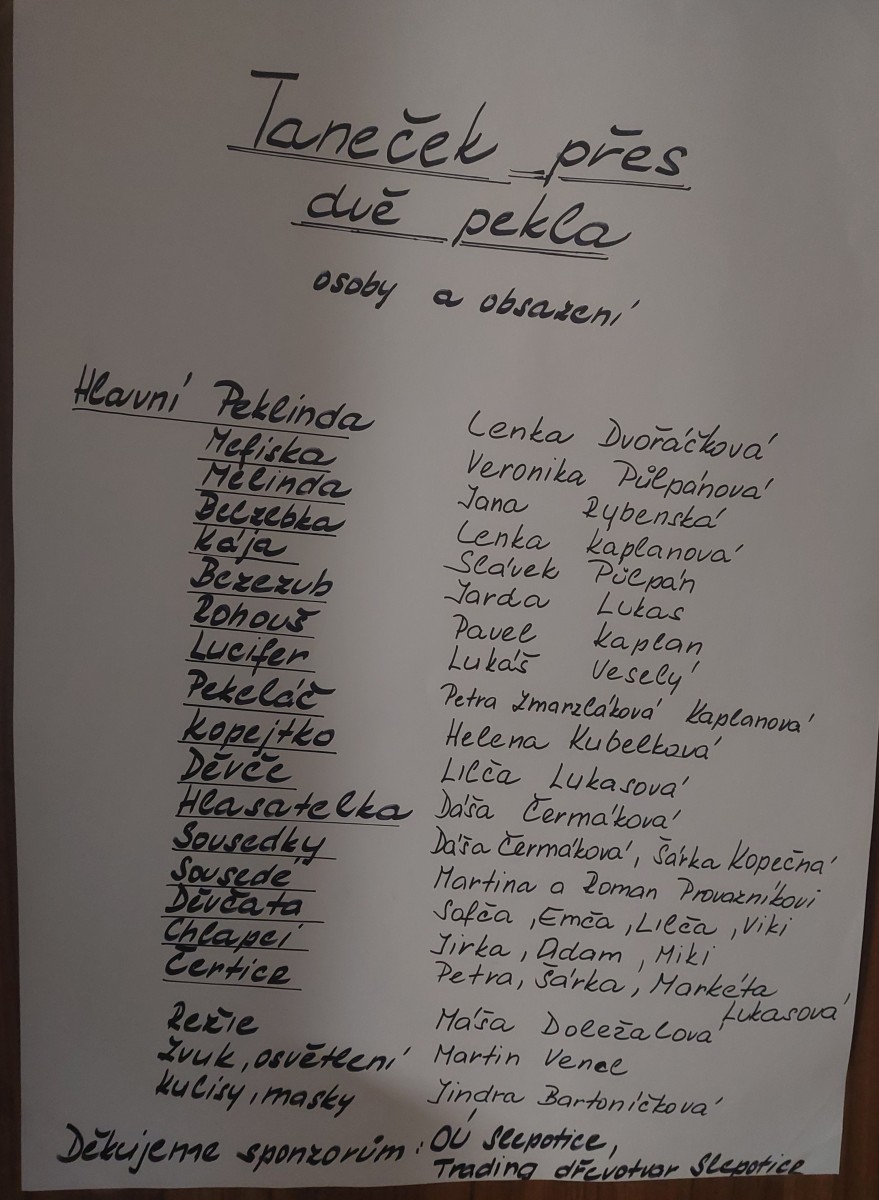 Taneček přes
dvě pekla
osoby a obsazení
Hlavní Peklinda Lenka Dvořáčková
Mefiska Veronika Půlpánová
Melinda Jana Rybenská
Belzebka Lenka Kaplanová
Kája Slávek Půlpán
Bezezub Jarda Lukas
Rohouš Pavel Kaplan
Lucifer Lukáš Veselý
Pekeláč Petra Zmarzláková Kaplanová
Kopejtko Helena Kubelková
Děvče Lilča Lukasová
Hlasatelka Dáša Čermáková
Sousedky Dáša Čermáková, Šárka Kopečná
Sousedé Martina a Roman Provazníkovi
Děvčata Sofča, Emča, Lilča, Viki
Chlapci Jirka, Adam, Miki
Čertice Petra, Šárka, Markéta
Lukasová
Režie Máša Doležalová
Zvuk, osvětlení Martin Vencl
Kulisy, masky Jindra Bartoníčková
Děkujeme sponzorům: OÚ Slepotice,
Trading dřevotvar Slepotice